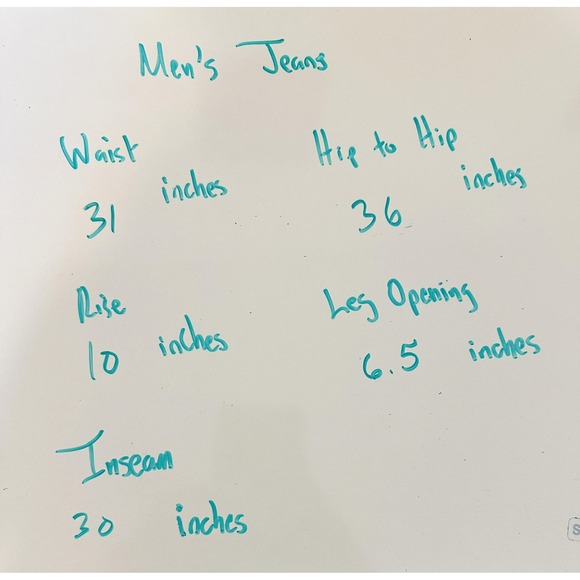 Men's Jeans
Waist
31 inches
Hip to Hip
36 inches
Rise
10 inches
Leg Opening
6.5 inches
Inseam
30 inches
S